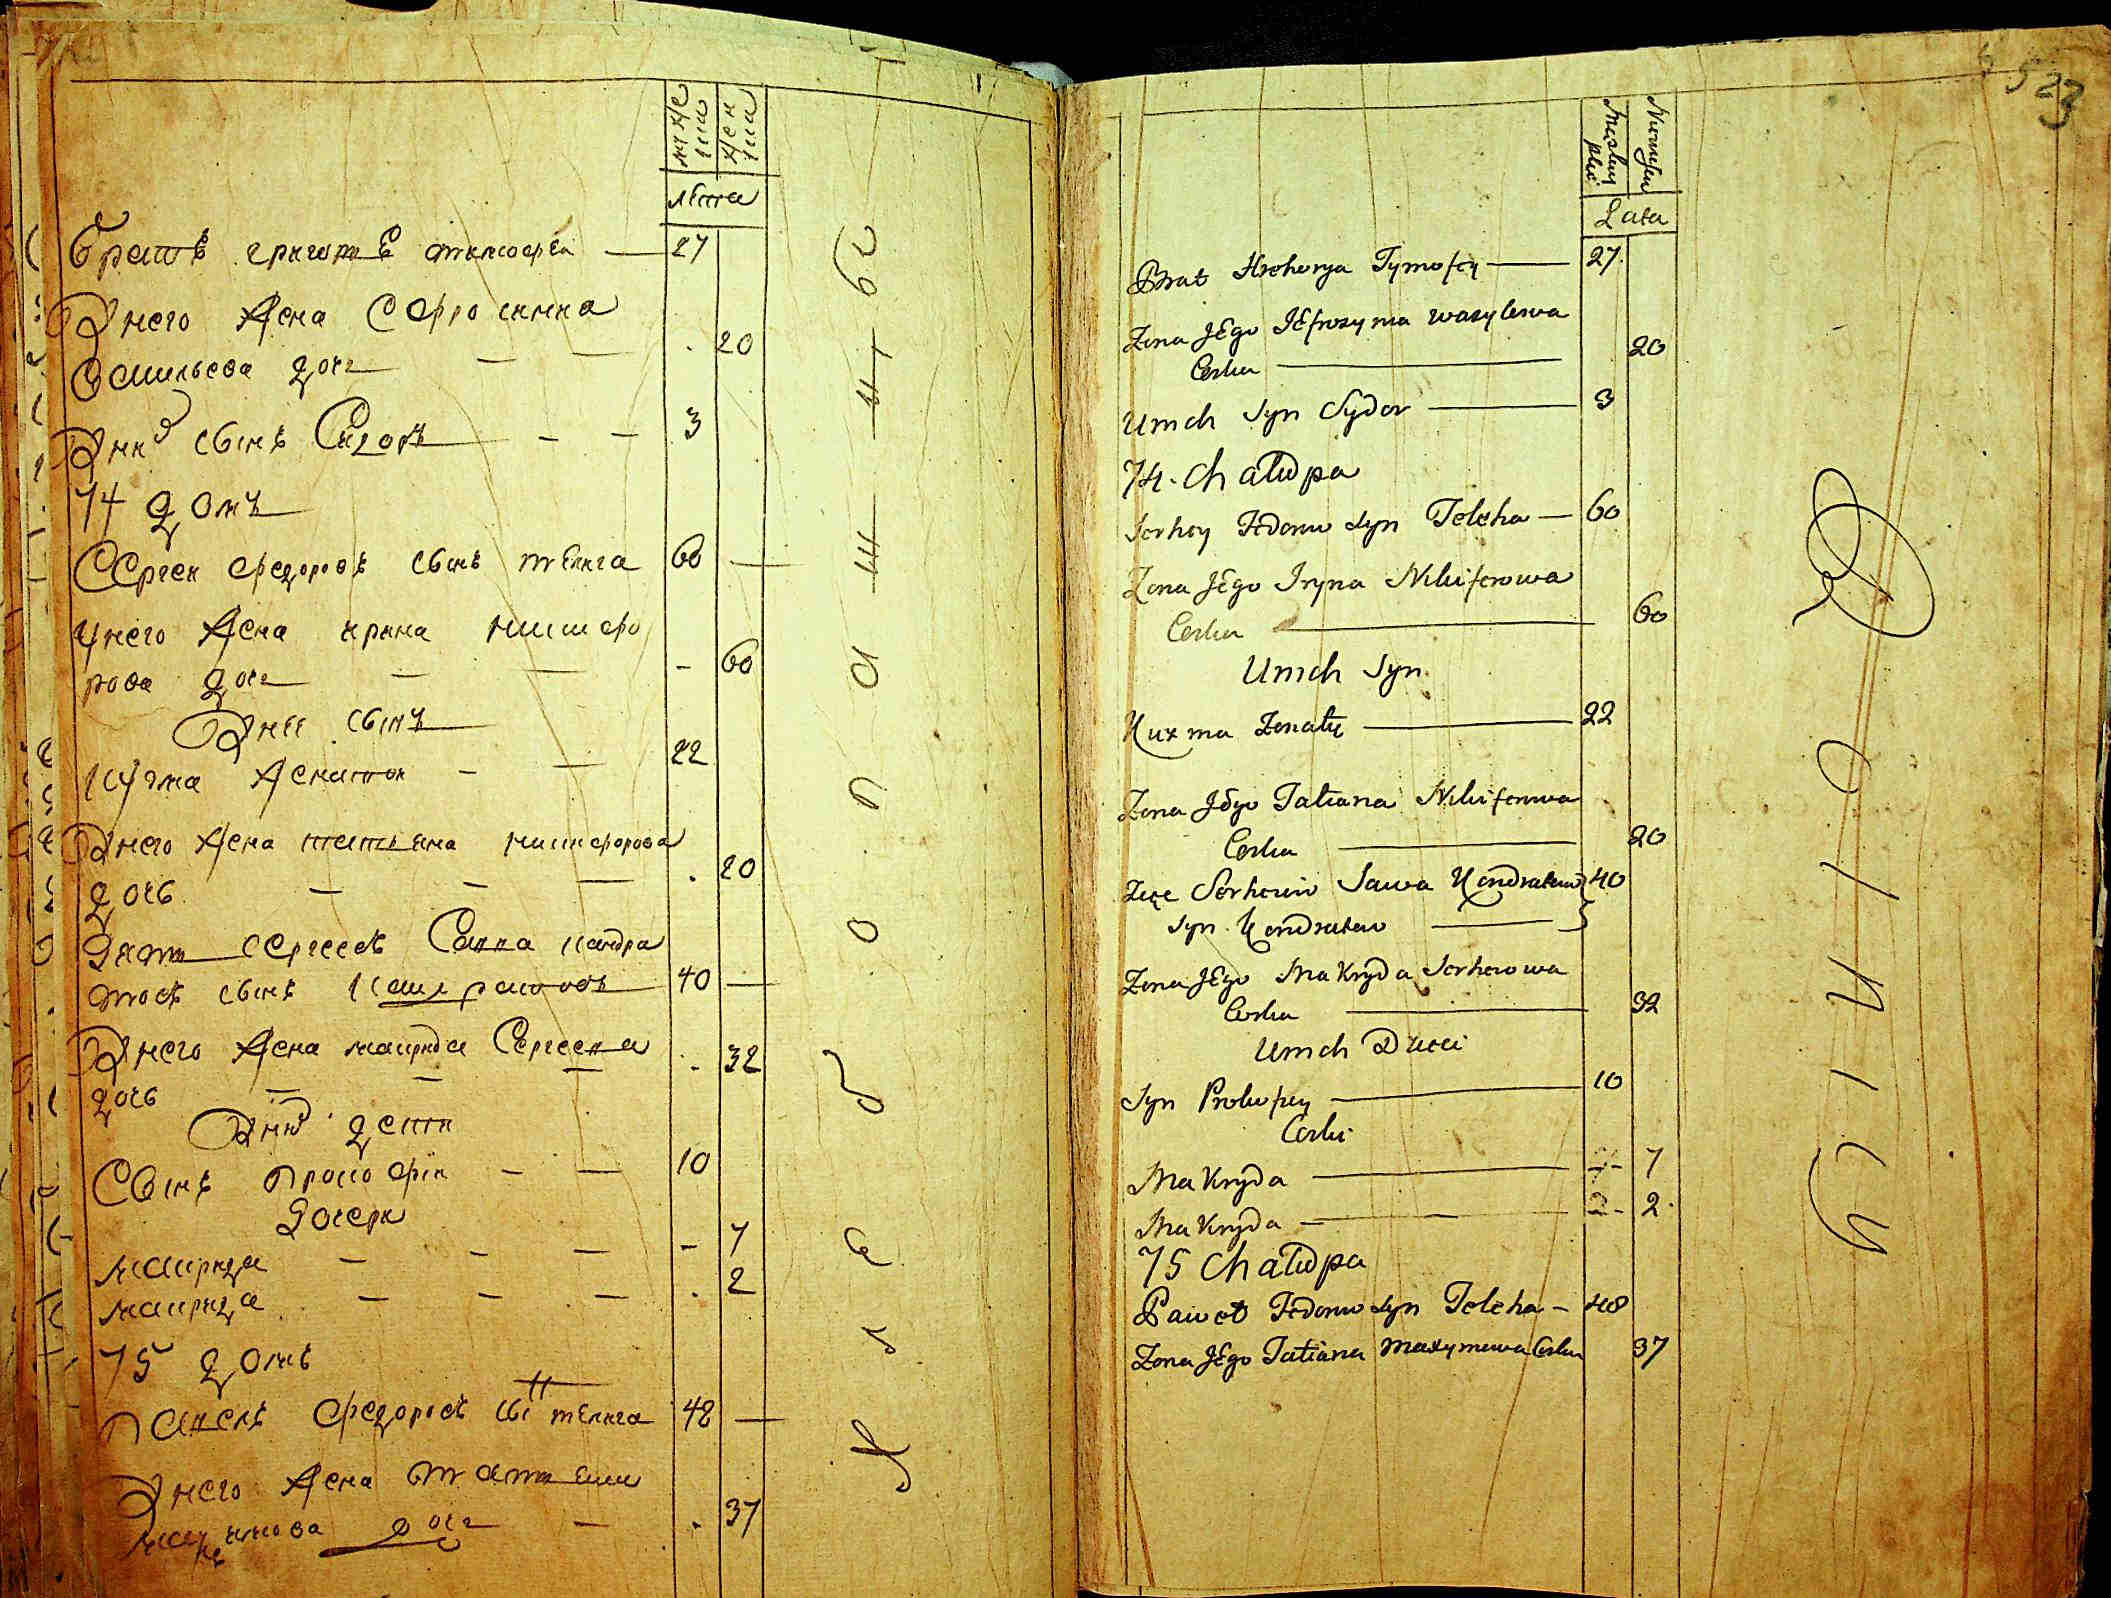 мужс
ска
женс
ска
лѣта
братъ григорѣ тимофѣи — 27
У него жена Єфросинина
Васильева дочь — — 20
У них сынъ Сидоръ — — 3
74 домъ
Сергеи Федоровъ сынъ телѣга 60 —
У него жена ирина никифо
рова дочь — — - 60
У нее сынъ
Кузма женатои — — 22
У него жена татьяна никифорова
дочь — — — 20
Зять Сергеевъ Савва кондра
товъ сынъ 40 —
У него жена макрида Сергеева
дочь — — — 32
У них дети
Сынъ прокофіи — — 10
Дочери
макрида — — — - 7
макрида — — — 2
75 домъ
павелъ Федоровъ сынъ телѣга 48 —
У него жена татьяна
максимова дочь — 37
523
Męskiey
płci
Niewiesc
Lata
Brat Hrehorya Tymofey — 27.
Zona JEgo JEfrozyma wazylewa
Corka — 20
U nich Syn Sydor — 3
74. Chałupa
Serhey Fedorow Syn Teleha — 60
Zona JEgo Iryna Nikiferowa
Corka — 60
U nich Syn
Kuzma Zonaty — 22
Zona JEgo Tatiana Nikiferowa
Corka — 20
Zięc Serheiow Sawa Kondratow 40
Syn Kondratow —
Zona JEgo Makryda Serheiowa
Corka — 32
U nich Dzieci
Syn Prokofiey — 10
Corki
Makryda — 7
Makryda — — — 2.
75 Chałupa
Paweł Fedorow Syn Teleha — 48
Zona JEgo Tatiana Maxymowa Corka 37